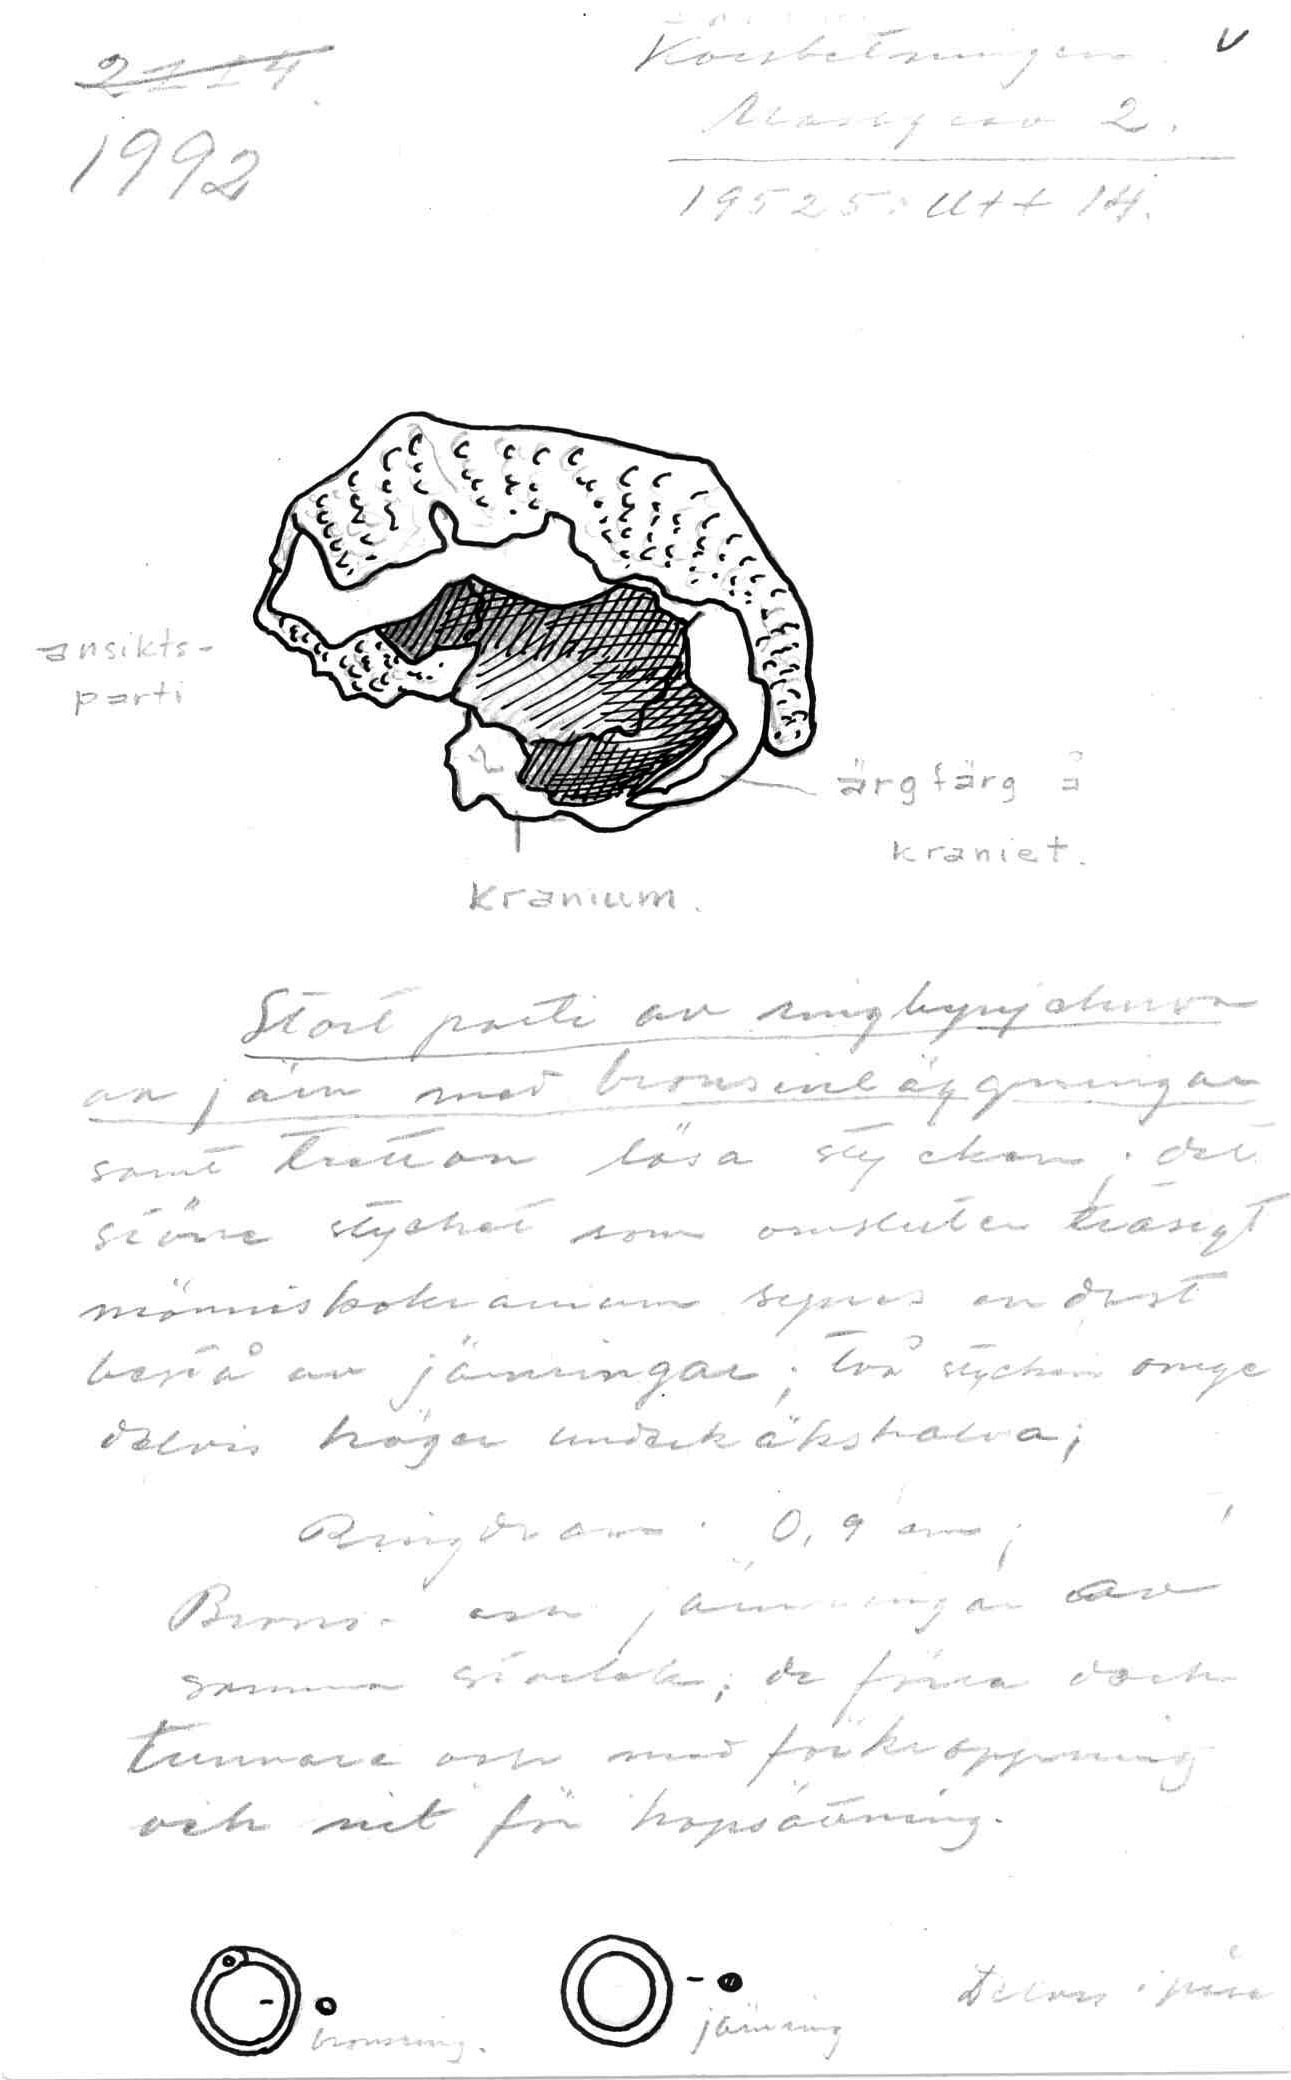 2114.
1992
Korsbetningen. v
Massgrav 2.
19525: Utt 14.
ansikts-
parti
ärgfärg å
kraniet.
kranium.
Stort parti av ringbrynjehuva
av järn med bronsinläggningar
samt tretton lösa stycken; det
större stycket som omsluter trasigt
människokranium synes endast
bestå av järnringar; två stycken omge
delvis höger underkäkshalva;
Ringdiam. 0,9 cm;
Brons- och järnringar av
samma storlek; de förra dock
tunnare och med förkroppning
och nit för hopsättning.
bronsring.
järnring
Delvis i påse